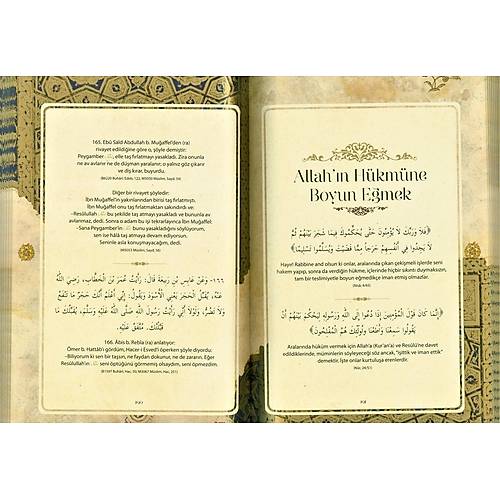 165. Ebû Saîd Abdullah b. Muğaffel'den (ra)
rivayet edildiğine göre o, şöyle demiştir:
Peygamber ﷺ, elle taş fırlatmayı yasakladı. Zira onunla
ne av avlanır ne de düşman yaralanır; o yalnız göz çıkarır
ve diş kırar, buyurdu.
(B6220 Buhârî, Edeb, 122; M5050 Müslim, Sayd, 54)
Diğer bir rivayet şöyledir:
İbn Muğaffel'in yakınlarından birisi taş fırlatmıştı.
İbn Muğaffel onu taş fırlatmaktan sakındırdı ve:
-Resûlullah ﷺ bu şekilde taş atmayı yasakladı ve bununla av
avlanmaz, dedi. Sonra o adam bu işi tekrarlayınca İbn Muğaffel:
-Sana Peygamber'in ﷺ bunu yasakladığını söylüyorum,
sen ise hâlâ taş atmaya devam ediyorsun.
Seninle asla konuşmayacağım, dedi.
(M5053 Müslim, Sayd, 56)
١٦٦- وَعَنْ عَابِسِ بْنِ رَبِيعَةَ قَالَ: رَأَيْتُ عُمَرَ بْنَ الْخَطَّابِ، رَضِيَ اللَّهُ
عَنْهُ، يُقَبِّلُ الْحَجَرَ يَعْنِي الْأَسْوَدَ وَيَقُولُ: إِنِّي أَعْلَمُ أَنَّكَ حَجَرٌ مَا تَنْفَعُ
وَلَا تَضُرُّ، وَلَوْلَا أَنِّي رَأَيْتُ رَسُولَ اللَّهِ صَلَّى اللَّهُ عَلَيْهِ وَسَلَّمَ، يُقَبِّلُكَ مَا
قَبَّلْتُكَ. مُتَّفَقٌ عَلَيْهِ.
166. Âbis b. Rebîa (ra) anlatıyor:
Ömer b. Hattâb'ı gördüm, Hacer-i Esved'i öperken şöyle diyordu:
-Biliyorum ki sen bir taşsın, ne faydan dokunur, ne de zararın. Eğer
Resûlullah'ın ﷺ seni öptüğünü görmemiş olsaydım, seni öpmezdim.
(B1597 Buhârî, Hac, 50; M3067 Müslim, Hac, 251)
Allah'ın Hükmüne
Boyun Eğmek
﴿فَلَا وَرَبِّكَ لَا يُؤْمِنُونَ حَتَّى يُحَكِّمُوكَ فِيمَا شَجَرَ بَيْنَهُمْ ثُمَّ
لَا يَجِدُوا فِي أَنْفُسِهِمْ حَرَجًا مِمَّا قَضَيْتَ وَيُسَلِّمُوا تَسْلِيمًا﴾
Hayır! Rabbine and olsun ki onlar, aralarında çıkan çekişmeli işlerde seni
hakem yapıp, sonra da verdiğin hükme, içlerinde hiçbir sıkıntı duymaksızın,
tam bir teslimiyetle boyun eğmedikçe iman etmiş olmazlar.
(Nisâ, 4/65)
﴿إِنَّمَا كَانَ قَوْلَ الْمُؤْمِنِينَ إِذَا دُعُوا إِلَى اللَّهِ وَرَسُولِهِ لِيَحْكُمَ بَيْنَهُمْ أَنْ
يَقُولُوا سَمِعْنَا وَأَطَعْنَا وَأُولَئِكَ هُمُ الْمُفْلِحُونَ﴾
Aralarında hüküm vermek için Allah'a (Kur'an'a) ve Resûlü'ne davet
edildiklerinde, müminlerin söyleyeceği söz ancak, "işittik ve iman ettik"
demektir. İşte onlar kurtuluşa erenlerdir.
(Nûr, 24/51)